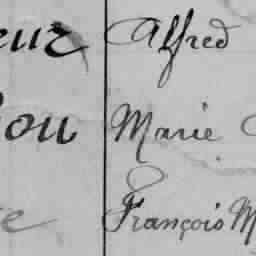 eux Alfred
ou Marie
François M